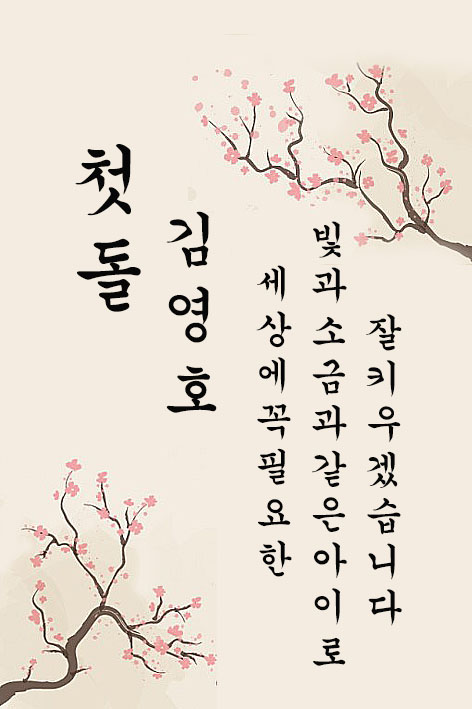 첫돌
김영호
세상에꼭필요한
빛과소금과같은아이로
잘키우겠습니다